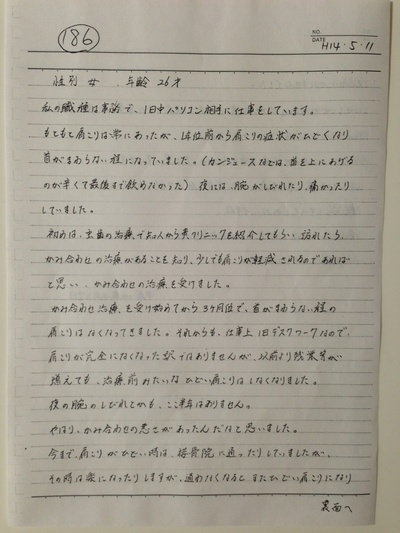 186
NO.
DATE H14・5・11
性別 女 年齢 26才
私の職種は事務で、1日中パソコン相手に仕事をしています。
もともと肩こりは常にあったが、1年位前から肩こりの症状がひどくなり
首がまわらない程になっていました。(カンジュースなどは、首を上にあげる
のが辛くて最後まで飲めなかった) 夜には、腕がしびれたり、痛かったり
していました。
初めは、虫歯の治療で知人から貴クリニックを紹介してもらい、訪れたら、
かみ合わせの治療があることを知り、少しでも肩こりが軽減されるのであれば
と思い、かみ合わせの治療を受けました。
かみ合わせ治療を受け始めてから3ヶ月位で、首がまわらない程の
肩こりはなくなってきました。それからも、仕事上1日デスクワークなので、
肩こりが完全になくなった訳ではありませんが、以前より残業等が
増えても、治療前みたいなひどい肩こりはしなくなりました。
夜の腕のしびれとかも、ここ最近はありません。
やはり、かみ合わせの悪さがあったんだなと思いました。
今まで、肩こりがひどい時は、接骨院に通ったりしていましたが、
その時は楽になったりしますが、通わなくなるとまたひどい肩こりになり
裏面へ